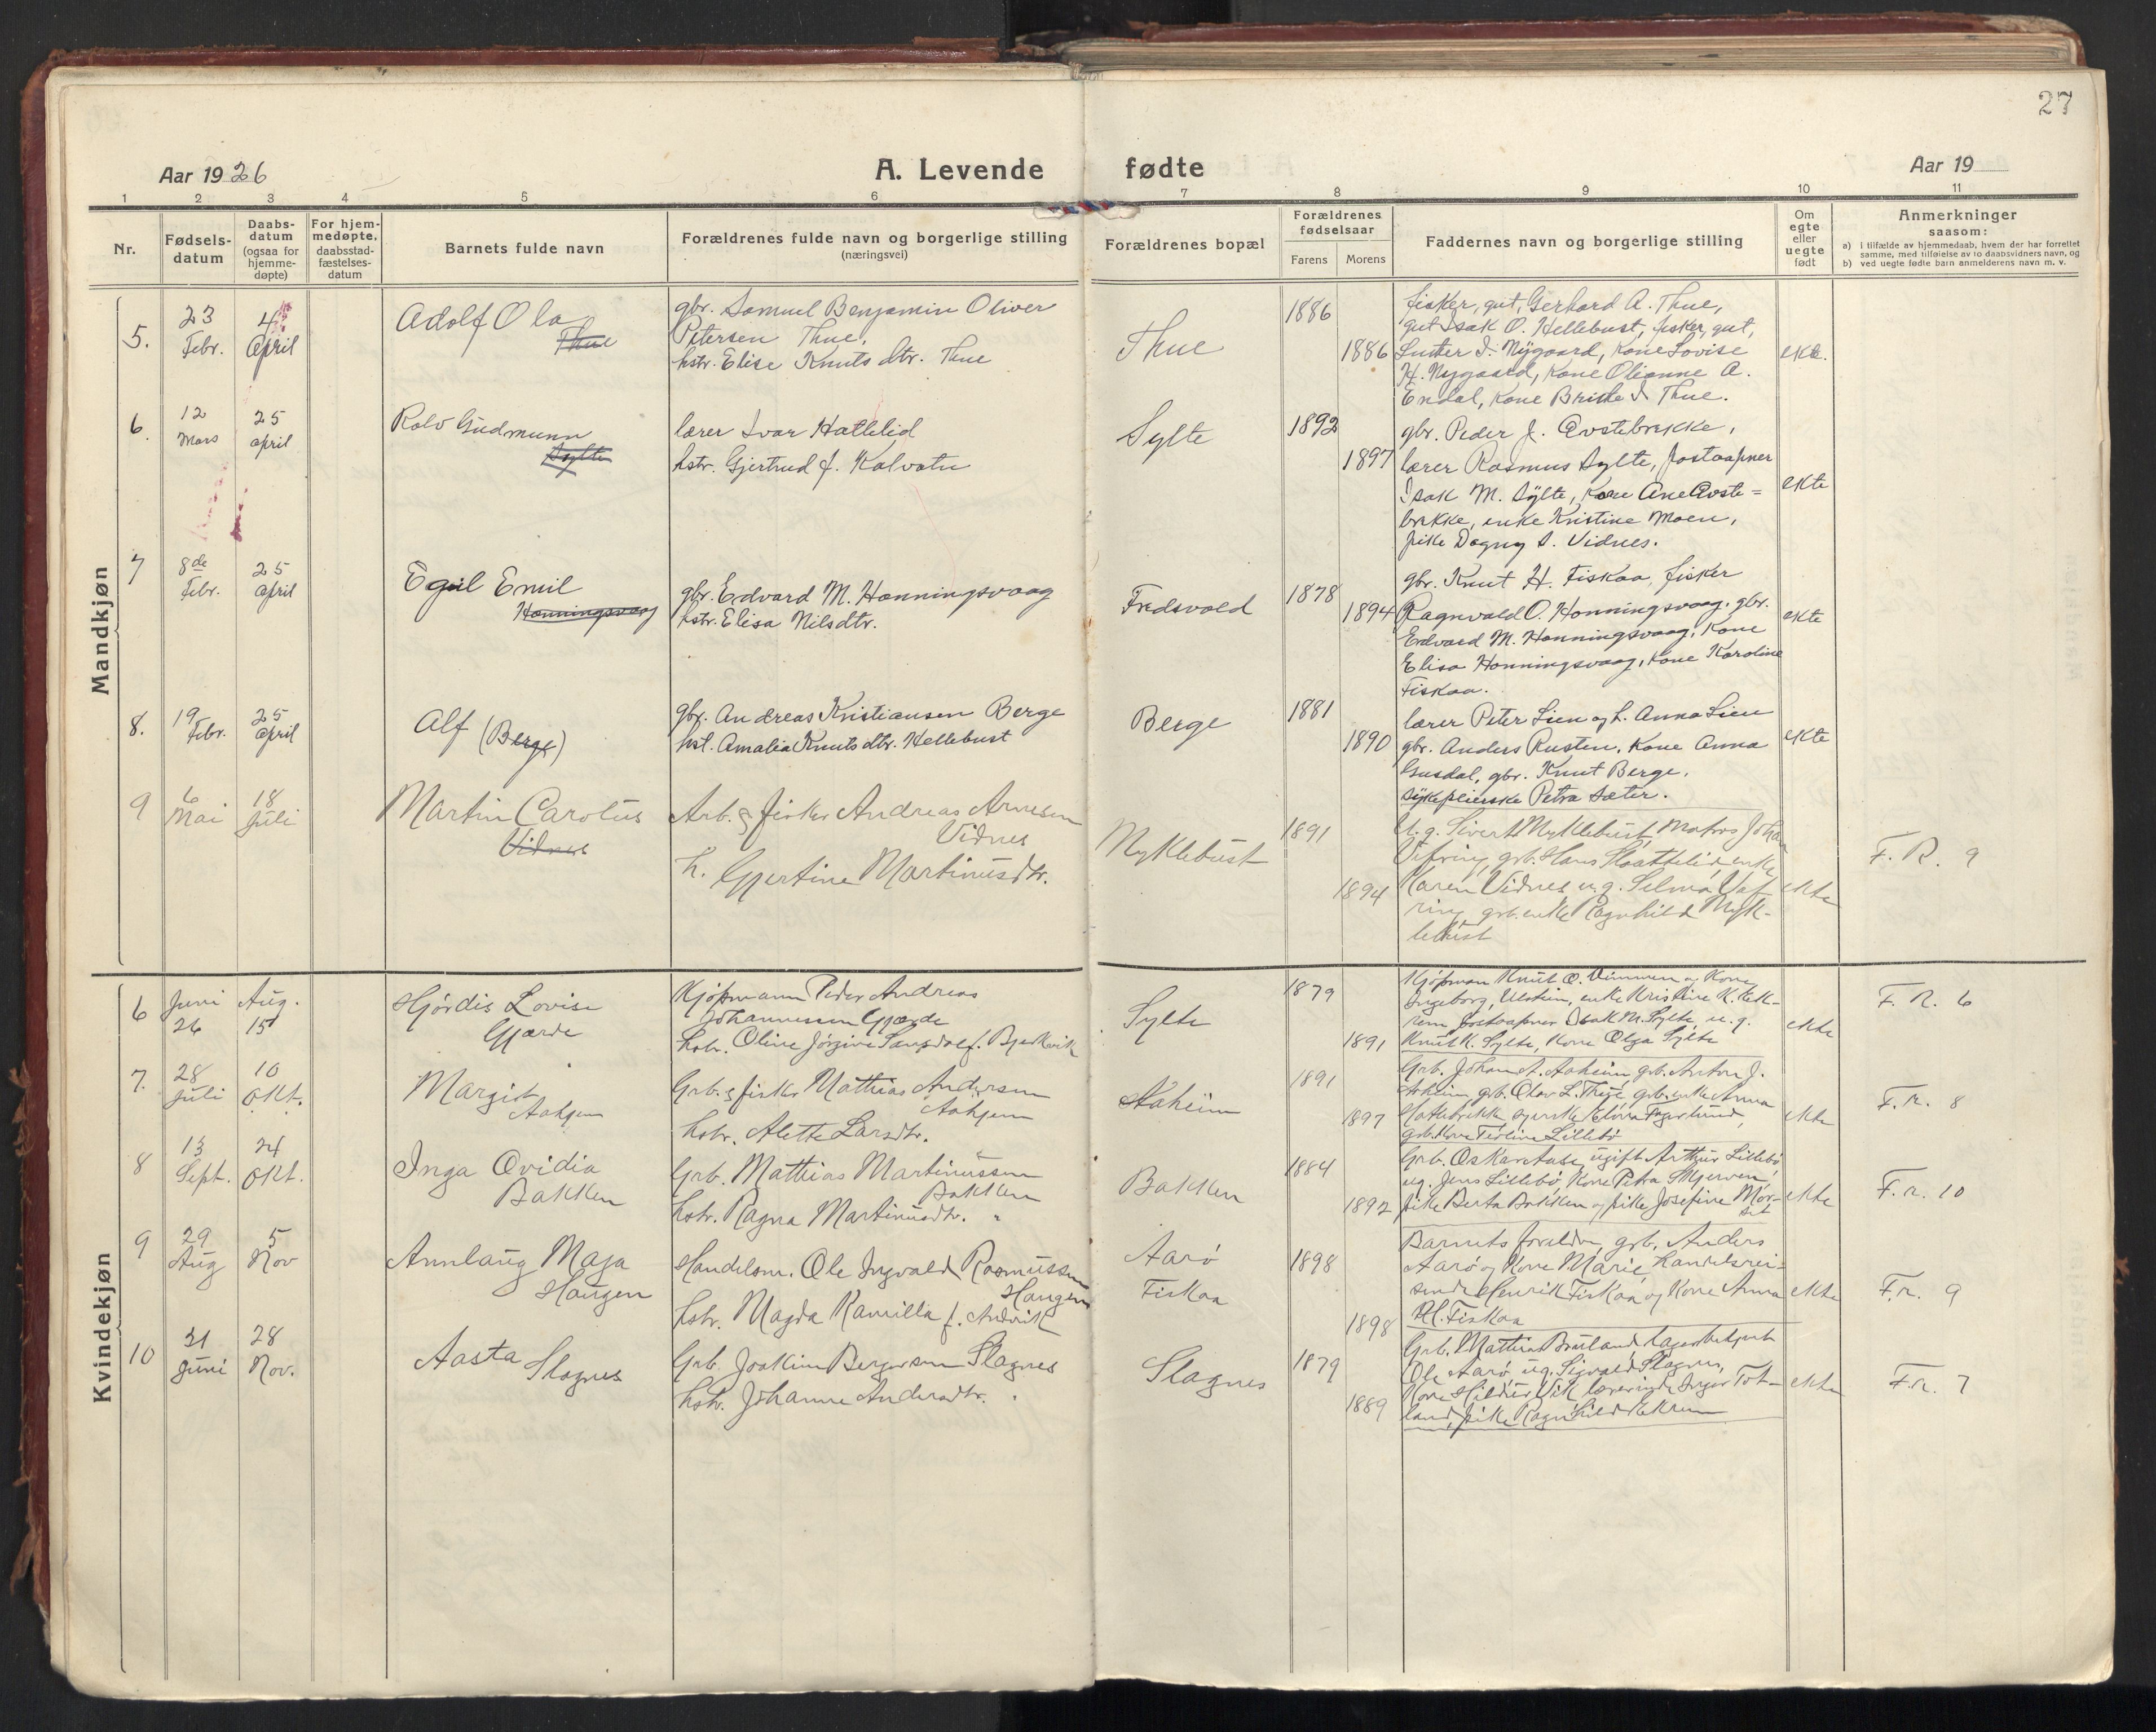 27
Aar 1926
A. Levende fødte
Aar 19
1 2 3 4 5 6 7 8 9 10 11
Nr.
Fødsels-
datum
Daabs-
datum
(ogsaa for
hjemme-
døpte)
For hjem-
medøpte,
daabsstad-
fæstelses-
datum
Barnets fulde navn
Forældrenes fulde navn og borgerlige stilling
(næringsvei)
Forældrenes bopæl
Forældrenes
fødselsaar
Farens Morens
Faddernes navn og borgerlige stilling
Om
egte
eller
uegte
født
Anmerkninger
saasom:
a) i tilfælde av hjemmedaab, hvem der har forrettet
samme, med tilføielse av to daabsvidners navn, og
b) ved uegte fødte barn anmelderens navn m. v.
Mandkjøn
5.
23
Febr.
4
April
Adolf Ola
Thue
gbr. Samuel Benjamin Oliver
Petersen Thue,
hstr. Elise Knuts dtr. Thue
Thue
1886
1886
fisker, gut, Gerhard A. Thue,
gut Isak O. Hellebust, fisker, gut,
J. Nygaard, Kone Lovise
H. Nygaard, Kone Olianne A.
Endal, Kone Thue.
ekte.
6.
12
Mars
25
april
Rolv Gudmunn
Sylte
lærer Ivar Hatlelid
hstr. Gjertrud f. Kalvatn
Sylte
1892
1897
gbr. Peder J. Avstebrekke,
lærer Rasmus Sylte, Postaapner
Isak M. Sylte, Kone Ane Avste=
brekke, enke Kristine Moen,
pike Dagny S. Vidnes.
ekte
7
8de
Febr.
25
april
Egil Emil
Honningsvaag
gbr. Edvard M. Honningsvaag
hstr. Elisa Nilsdtr.
Fredsvold
1878
1894
gbr. Knut H. Fiskaa, fisker
Ragnvald O. Honningsvaag, gbr.
Edvard M. Honningsvaag, Kone
Elisa Honningsvaag, Kone Karoline
Fiskaa.
ekte
8.
19
Febr.
25
april
Alf (Berge)
gbr. Andreas Kristiansen Berge
hst. Amalia Knuts dtr. Hellebust
Berge
1881
1890
lærer Peter Lien og h. Anna Lien
gbr. Anders Rusten, Kone Anna
Gusdal, gbr. Knut Berge,
sykepleierske Petra Sæter.
ekte
9
6
Mai
18
Juli
Martin Carolus
Vidnes
Arb. & fisker Andreas Arnesen
Vidnes
h. Gjertine Martinusdtr.
Myklebust
1891
1894
U.g. Sivert Myklebust, Matros Johan
Vefring, grb. Hans Slaattelid, enke
Karen Vidnes u.g. Selma Vef-
ring, grb. enke Ragnhild Myk-
lebust
ekte
F. R. 9
Kvindekjøn
6
Juni
26
Aug.
15
Hjördis Lovise
Gjærde
Kjöpmann Peder Andreas
Johannessen Gjærde
hstr. Oline Jörgine f. Bjerkvik
Sylte
1879
1891
Kjöpman Knut O. og Kone
Ingeborg, Ulstein, enke Kristine K. Eek-
rem Postaapner Isak M. Sylte u.g.
Knut K. Sylte, Kone Olga Sylte
ekte
F. R. 6
7.
28
Juli
10
Okt.
Margit
Aahjem
Grb. & fisker Mathias Andersen
Aahjem
hstr. Alette Larsdtr.
Aaheim
1891
1897
Grb. Johan A. Aaheim grb. Anton J.
Aaheim grb. Olav L. grb. enke Anna
Elvira Fagerlund,
grb. Kone Lillebö
ekte
F. R. 8
8
13
Sept.
24
Okt.
Inga Ovidia
Bakken
Grb. Mathias Martinussen
Bakken
hstr. Ragna Martinusdtr. "
Bakken
1884
1892
Grb. Oskar ugift Arthur Lillebö
ug. Jens Lillebö, Kone Petra Skjerven,
pike Berta Bakken og pike Josefine Mor-
set
ekte
F. R. 10
9
29
Aug
5
Nov
Annlaug Maja
Haugen
Handelsm. Ole Ingvald Rasmussen
Haugen
hstr. Magda Kamilla f.
Aarö
Fiskaa
1898
1898
Barnets foreldre, grb. Anders
Aarö og Kone Marie, handelsrei-
sende Henrik Fiskaa og Kone Anna
M. Fiskaa
ekte
F. R. 9
10
21
Juni
28
Nov.
Aasta
Slagnes
Grb. Joakim Bergersen Slagnes
hstr. Johanne Andersdtr. "
Slagnes
1879
1889
Grb. Mathias
Ole Aarö, ug. Sigvald Slagnes,
Kone Hildur Vik lærerinde Inger Tot-
land, pike Ragnhild Ekrem
ekte
F. R. 7